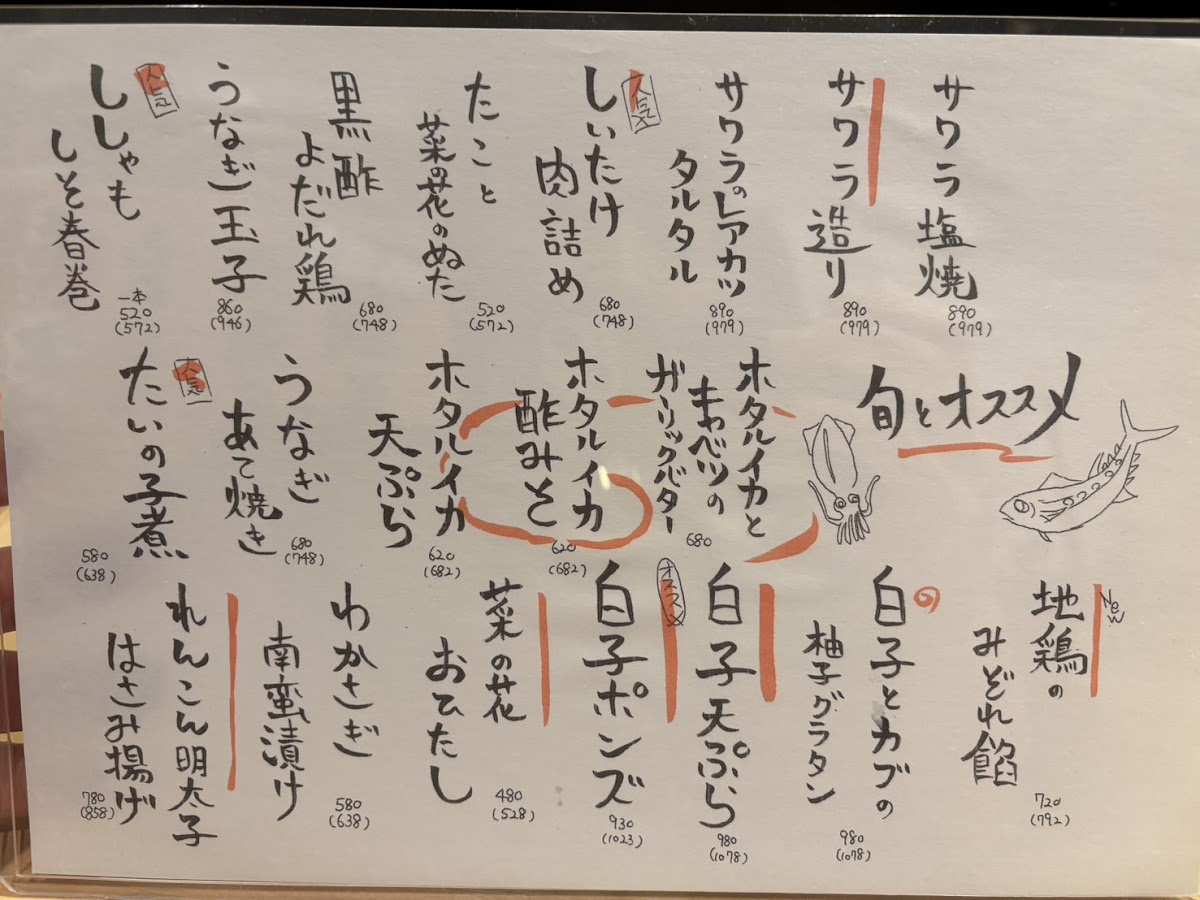 旬とオススメ
サワラ塩焼
890
(979)
サワラ造り
890
(979)
サワラのレアカツ
タルタル
890
(979)
人気
しいたけ
肉詰め
680
(748)
たこと
菜の花のぬた
520
(572)
黒酢
よだれ鶏
680
(748)
うなぎ玉子
860
(946)
人気
ししゃも
しそ春巻
一本
520
(572)
ホタルイカと
キャベツの
ガーリックバター
680
ホタルイカ
酢みそ
620
(682)
ホタルイカ
天ぷら
620
(682)
うなぎ
あて焼き
680
(748)
人気
たいの子煮
580
(638)
New
地鶏の
みぞれ餡
720
(792)
白子とカブの
柚子グラタン
980
(1078)
白子天ぷら
980
(1078)
オススメ
白子ポンズ
930
(1023)
菜の花
おひたし
480
(528)
わかさぎ
南蛮漬け
580
(638)
れんこん明太子
はさみ揚げ
780
(858)